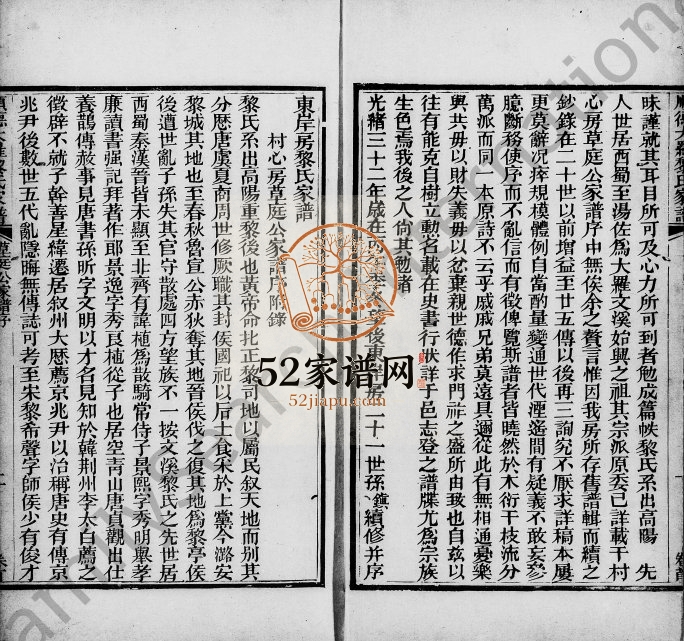 順德大羅黎氏家譜
卷首
昧謹就其耳目所可及心力所可到者勉成篇帙黎氏系出高陽 先
人世居西蜀至湯佐為大羅文溪始興之祖其宗派原委已詳載于村
心房草庭公家譜序中無俟余之贅言惟因我房所存舊譜輯而續之
鈔錄在二十世以前增益至廿五傳以後再三詢究不厭求詳稿本屢
更莫辭况挨規模體例自當酌量變通世代湮遙間有疑義不敢妄參
臆斷務使序而不亂信而有徵俾覽斯譜者皆曉然於木衍千枝流分
萬派而同一本原詩不云乎戚戚兄弟莫遠具邇從此有無相通憂樂
與共毋以財失義毋以忿棄親世德作求門祚之盛所由致也自茲以
往有能克自樹立勳名載在史書行狀詳于邑志登之譜牒尤為宗族
生色焉我後之人尚其勉者
光緒三十二年歲在 望後 二十一世孫鎮續修并序
東岸房黎氏家譜
村心房草庭公家譜序附錄
黎氏系出高陽重黎後也黃帝命北正黎司地以屬民叙天地而别其
分歷唐虞夏商周世修厥職其封侯國祀以后土食采於上黨今潞安
黎城其地也至春秋魯宣公赤狄奪其地晉侯伐之復其地為黎亭侯
後遭世亂子孫失其官守散處四方望族不一按文溪黎氏之先世居
西蜀秦漢晉皆未顯至北齊有諱植為散騎常侍子景熙字秀明舉孝
廉讀書强記拜著作郎景逸字秀良植從子也居空青山唐貞觀出仕
義鵲傳赦事見唐書孫昕字文明以才名見知於韓荆州李太白薦之
徵辟不就子幹善星緯遷居叙州大歷薦京兆尹以治稱唐史有傳京
兆尹後數世五代亂隱晦無傳誌可考至宋黎希聲字師侯少有俊才
52家谱网
52jiapu.com